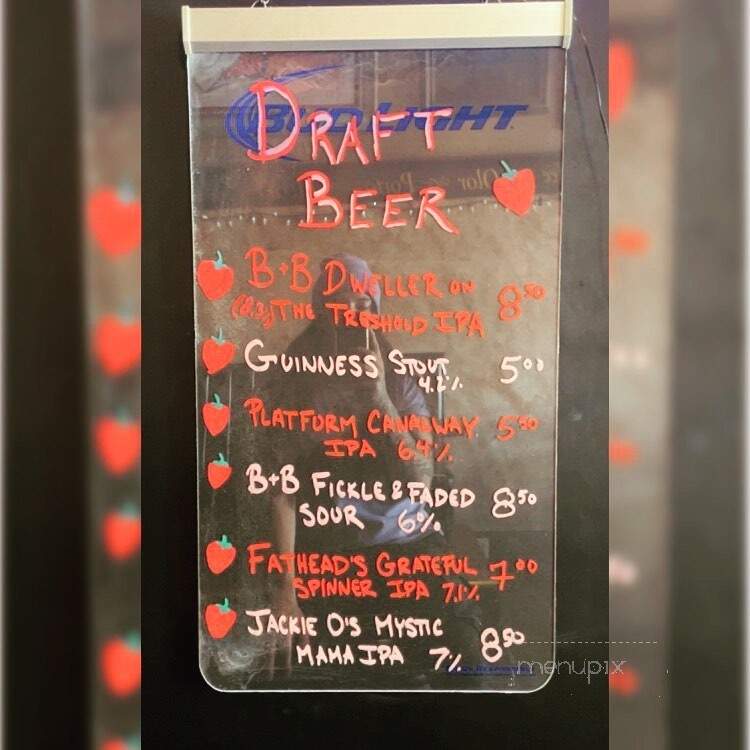 BUD LIGHT
DRAFT
BEER
B+B DWELLER ON 8.50
THE TRESHOLD IPA
GUINNESS STOUT 5.00
4.2%
PLATFORM CANALWAY 5.50
IPA 6.4%
B+B FICKLE & FADED 8.50
SOUR 6%
FATHEAD'S GRATEFUL 7.00
SPINNER IPA 7.1%
JACKIE O'S MYSTIC 8.50
MAMA IPA 7%
menupix